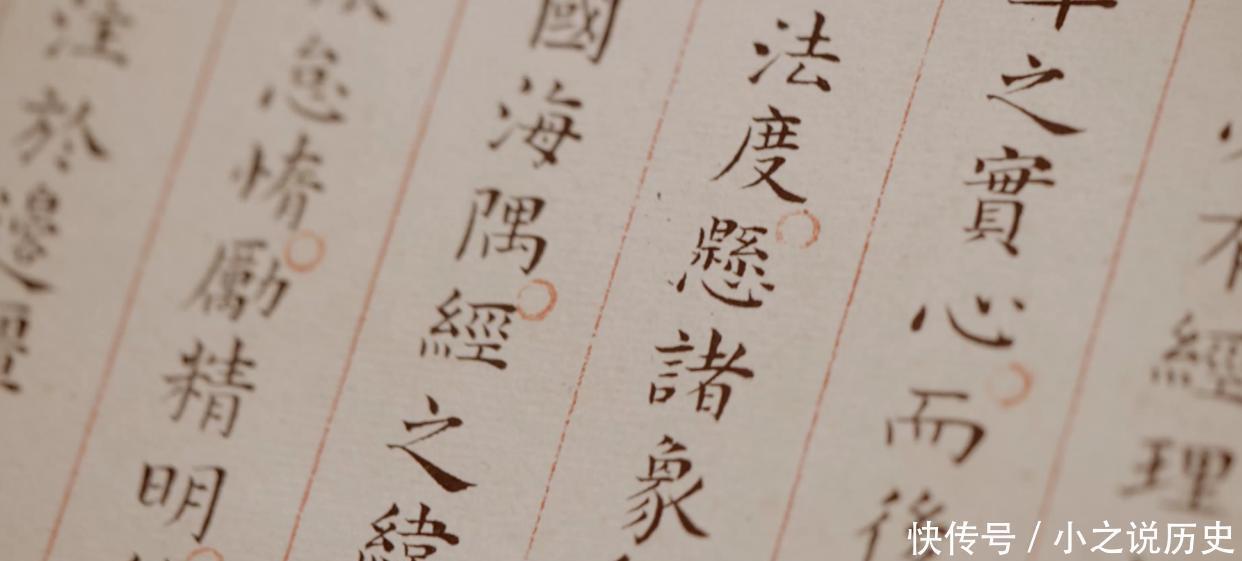 有經理
之實心而後
法度懸諸象
國海隅經之緯
怠惰勵精明
注於邊
快传号 / 小之说历史